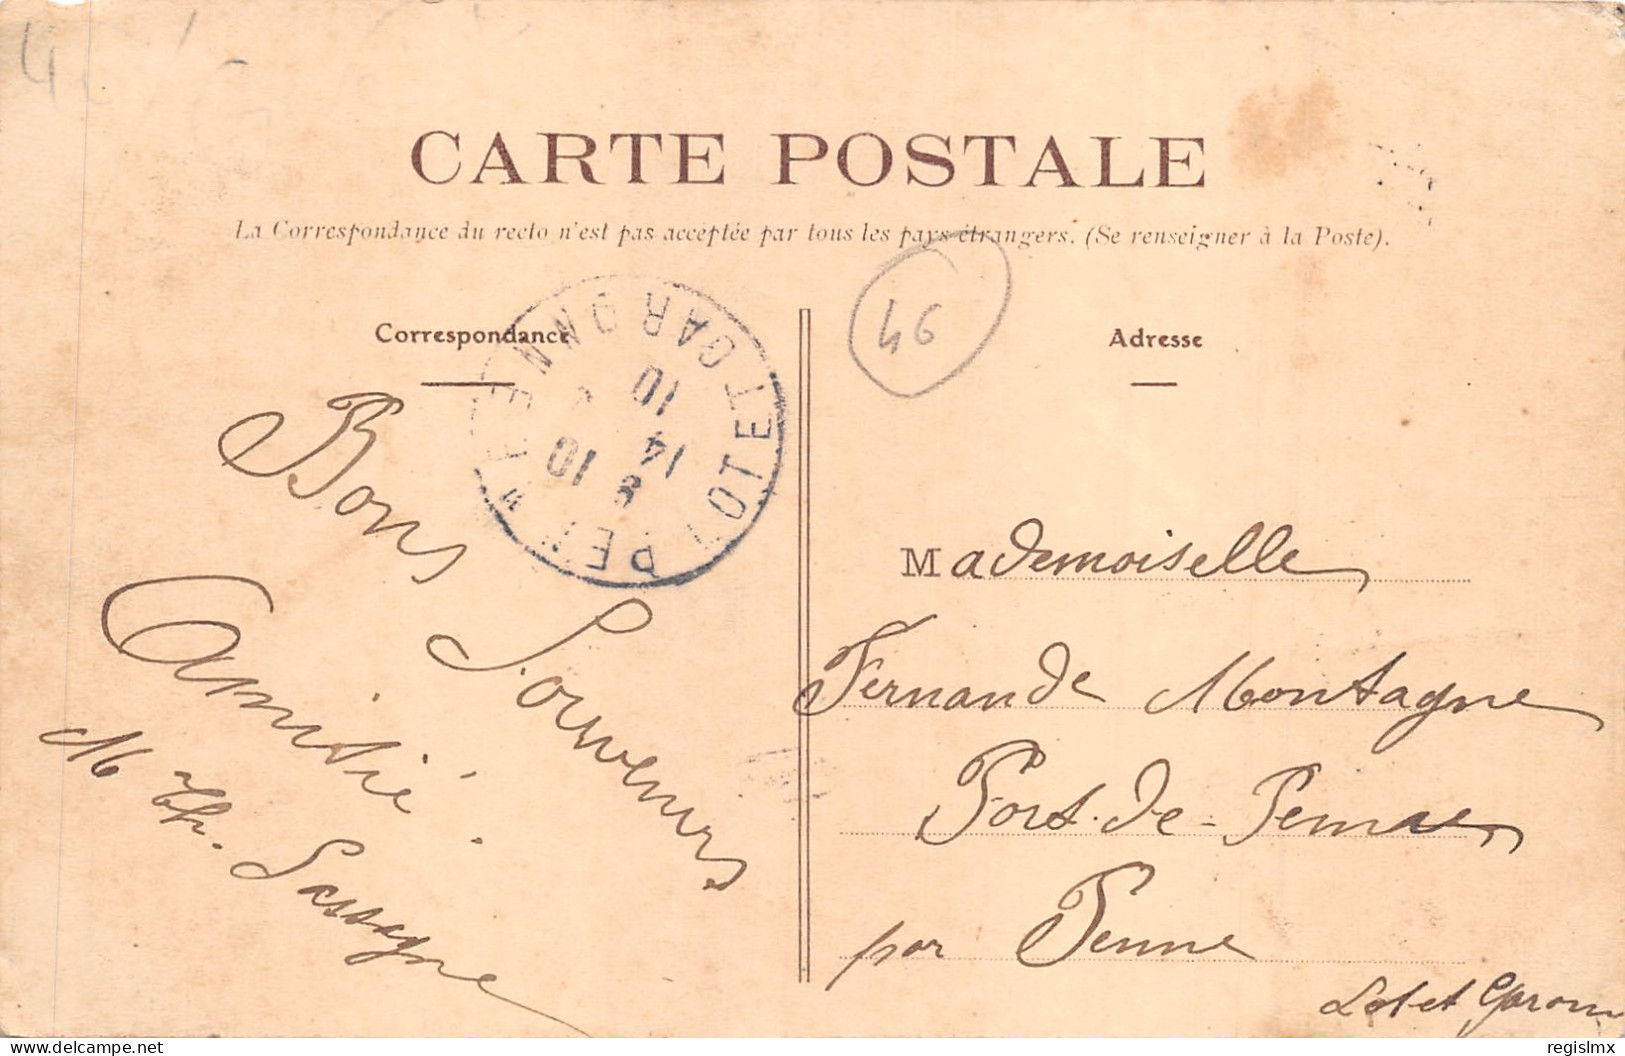 CARTE POSTALE
La Correspondance du recto n'est pas acceptée par tous les pays étrangers. (Se renseigner à la Poste).
46
Correspondance
Adresse
PENNE LOT ET GARONNE
10
14
8
10
Bons Souvenirs
Amitié.
M Th. Lassagne
Mademoiselle
Fernande Montagne
Port-de-Penne
par Penne
Lot et Garonne
delcampe.net
regislmx